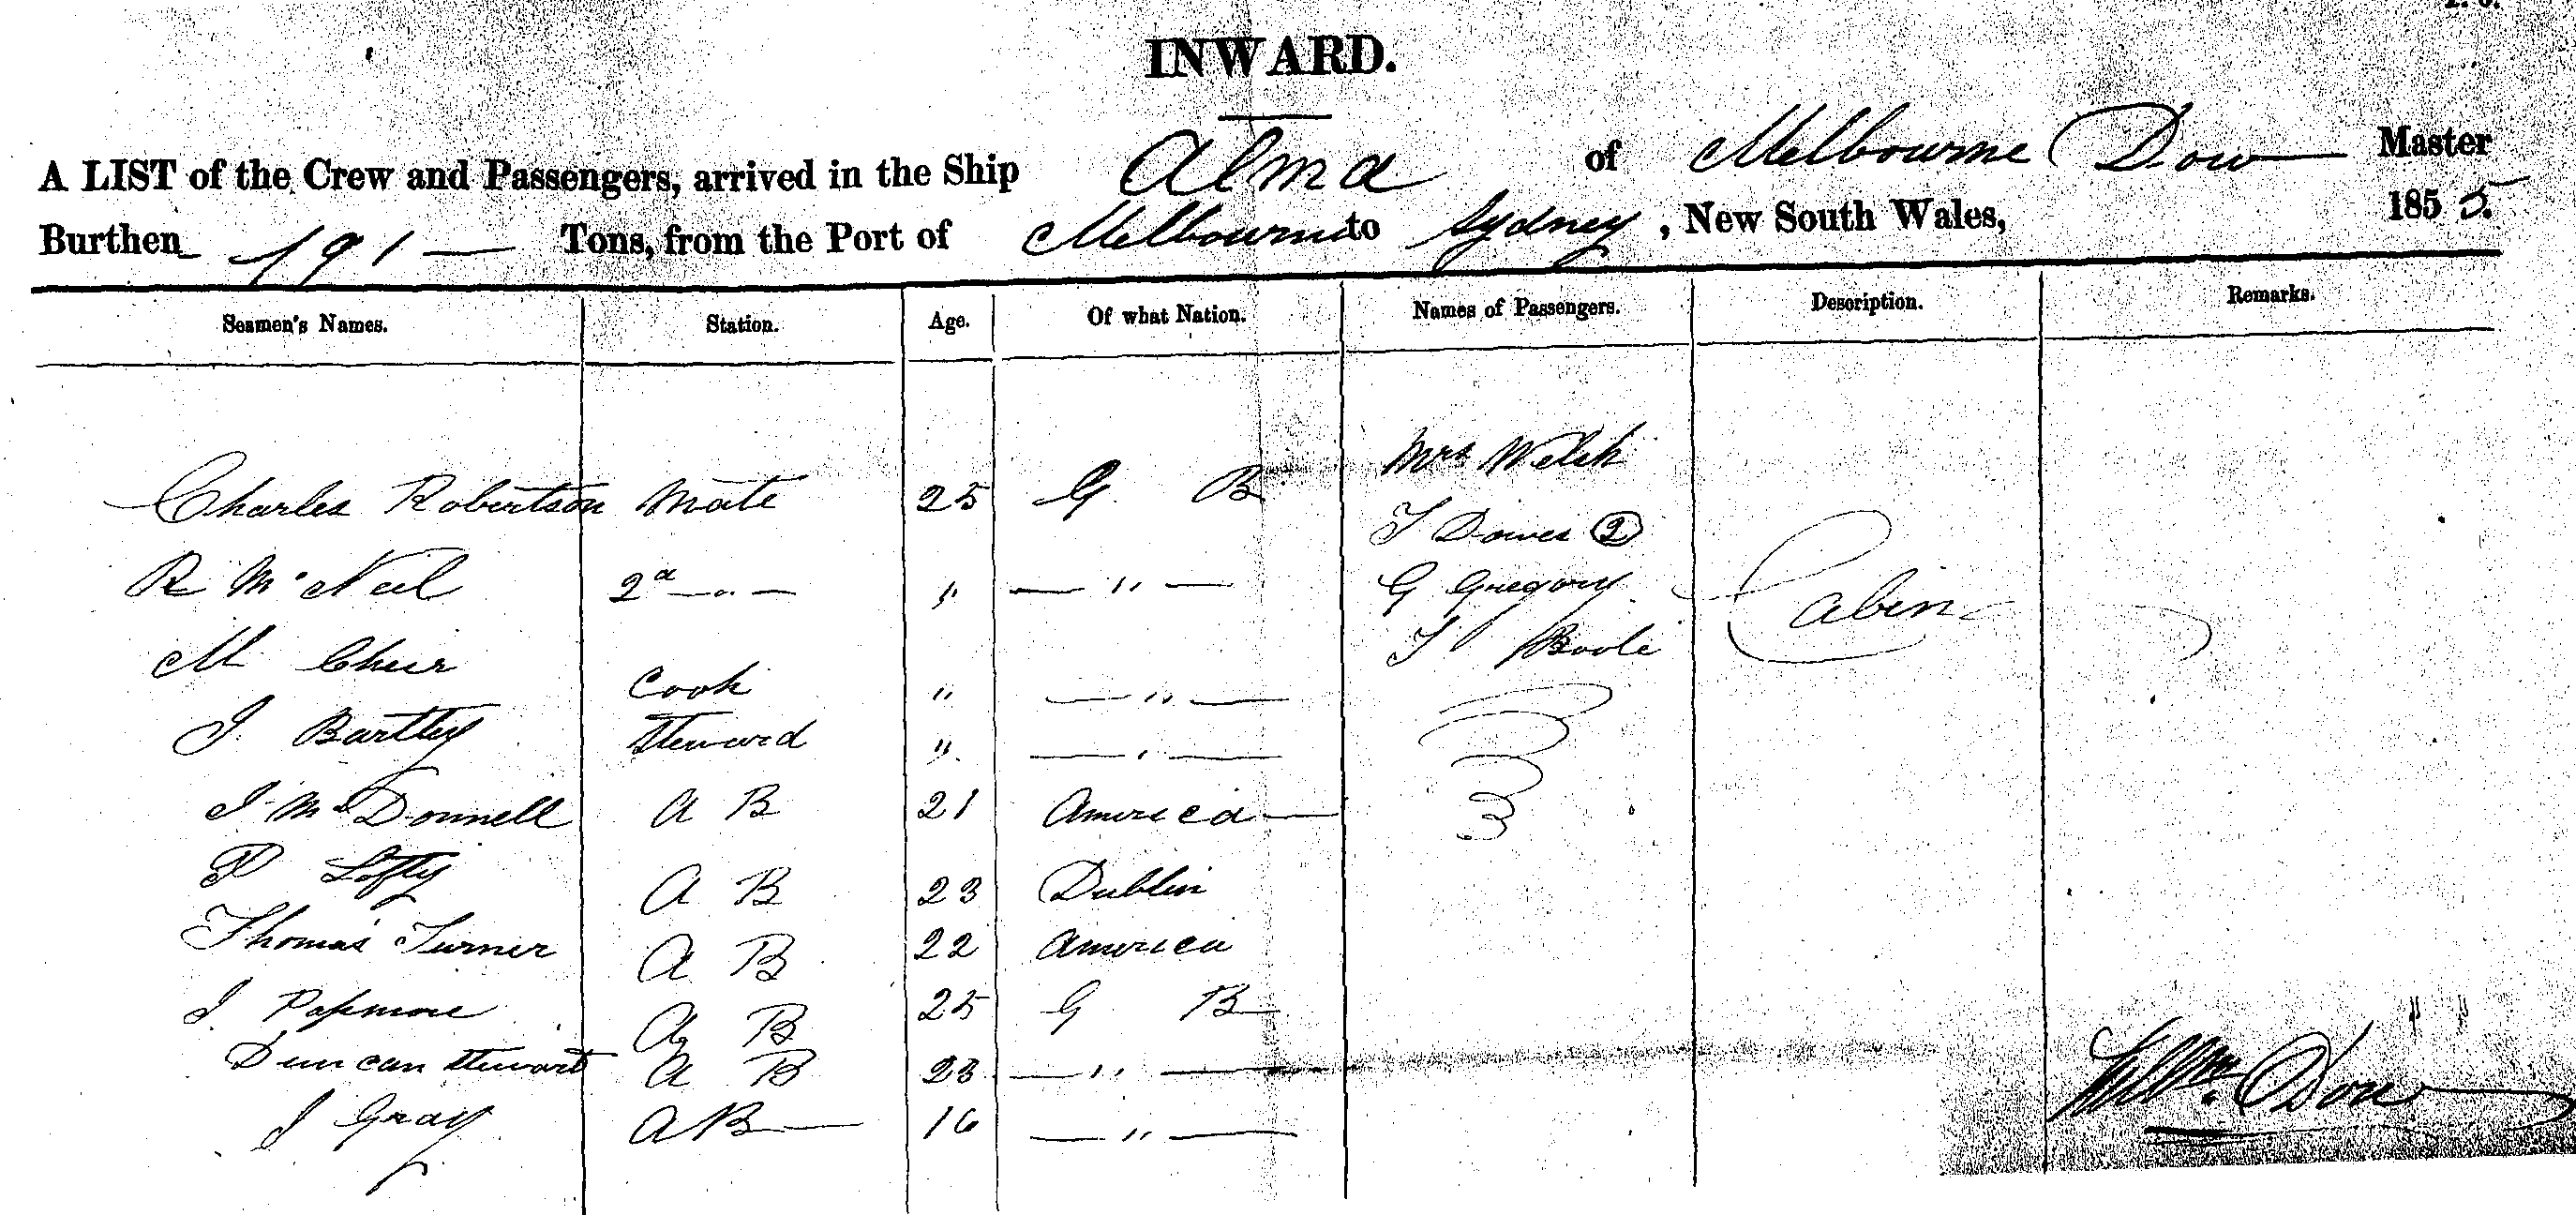 INWARD.
A LIST of the Crew and Passengers, arrived in the Ship Alma of Melbourne Dow Master
Burthen 191 Tons, from the Port of Melbourne to Sydney, New South Wales, 1855.
Seamen's Names. Station. Age. Of what Nation. Names of Passengers. Description. Remarks.
Mrs Welsh
Charles Robertson Mate 25 G B
R McNeil 2d —"— " — " — G Gregory Cabin
M Cook " — " —
J Bartley Steward " — " —
J McDonnell A B 21 America
P Lofty A B 23 Dublin
Thomas Turner A B 22 America
J A B 25 G B
Duncan Stewart A B 23 — " —
J Gray A B 16 — " —
Willm. Dow